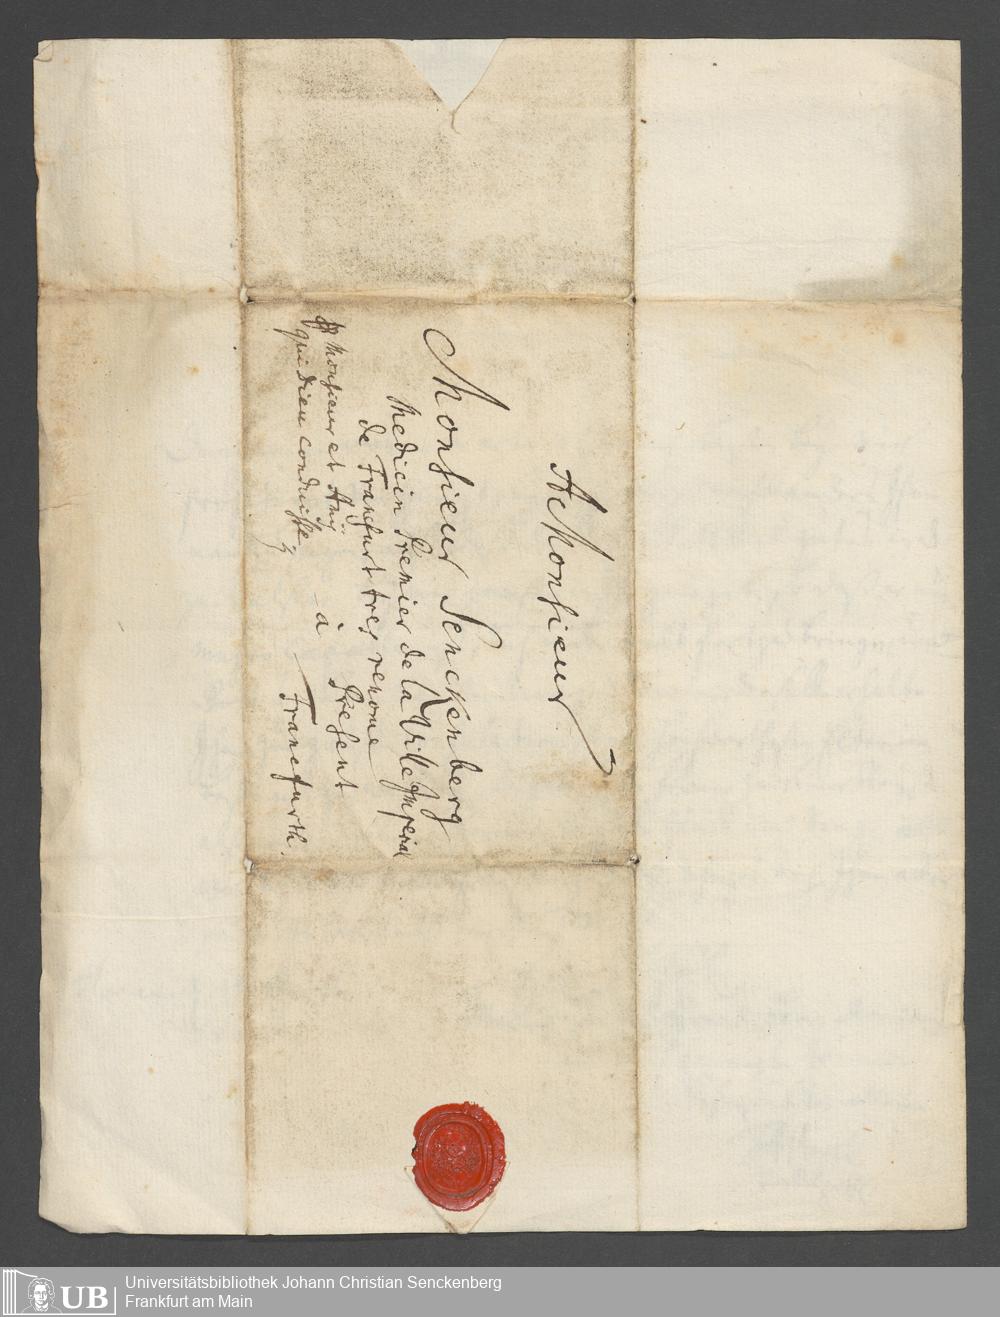 A Monsieur
Monsieur Senckenberg
Medicin Premier de la Ville Imperial
de Francfurt tres renome
à Present
Francfurth.
Monsieur et Amÿ
que Dieu conduise
Universitätsbibliothek Johann Christian Senckenberg
Frankfurt am Main
UB